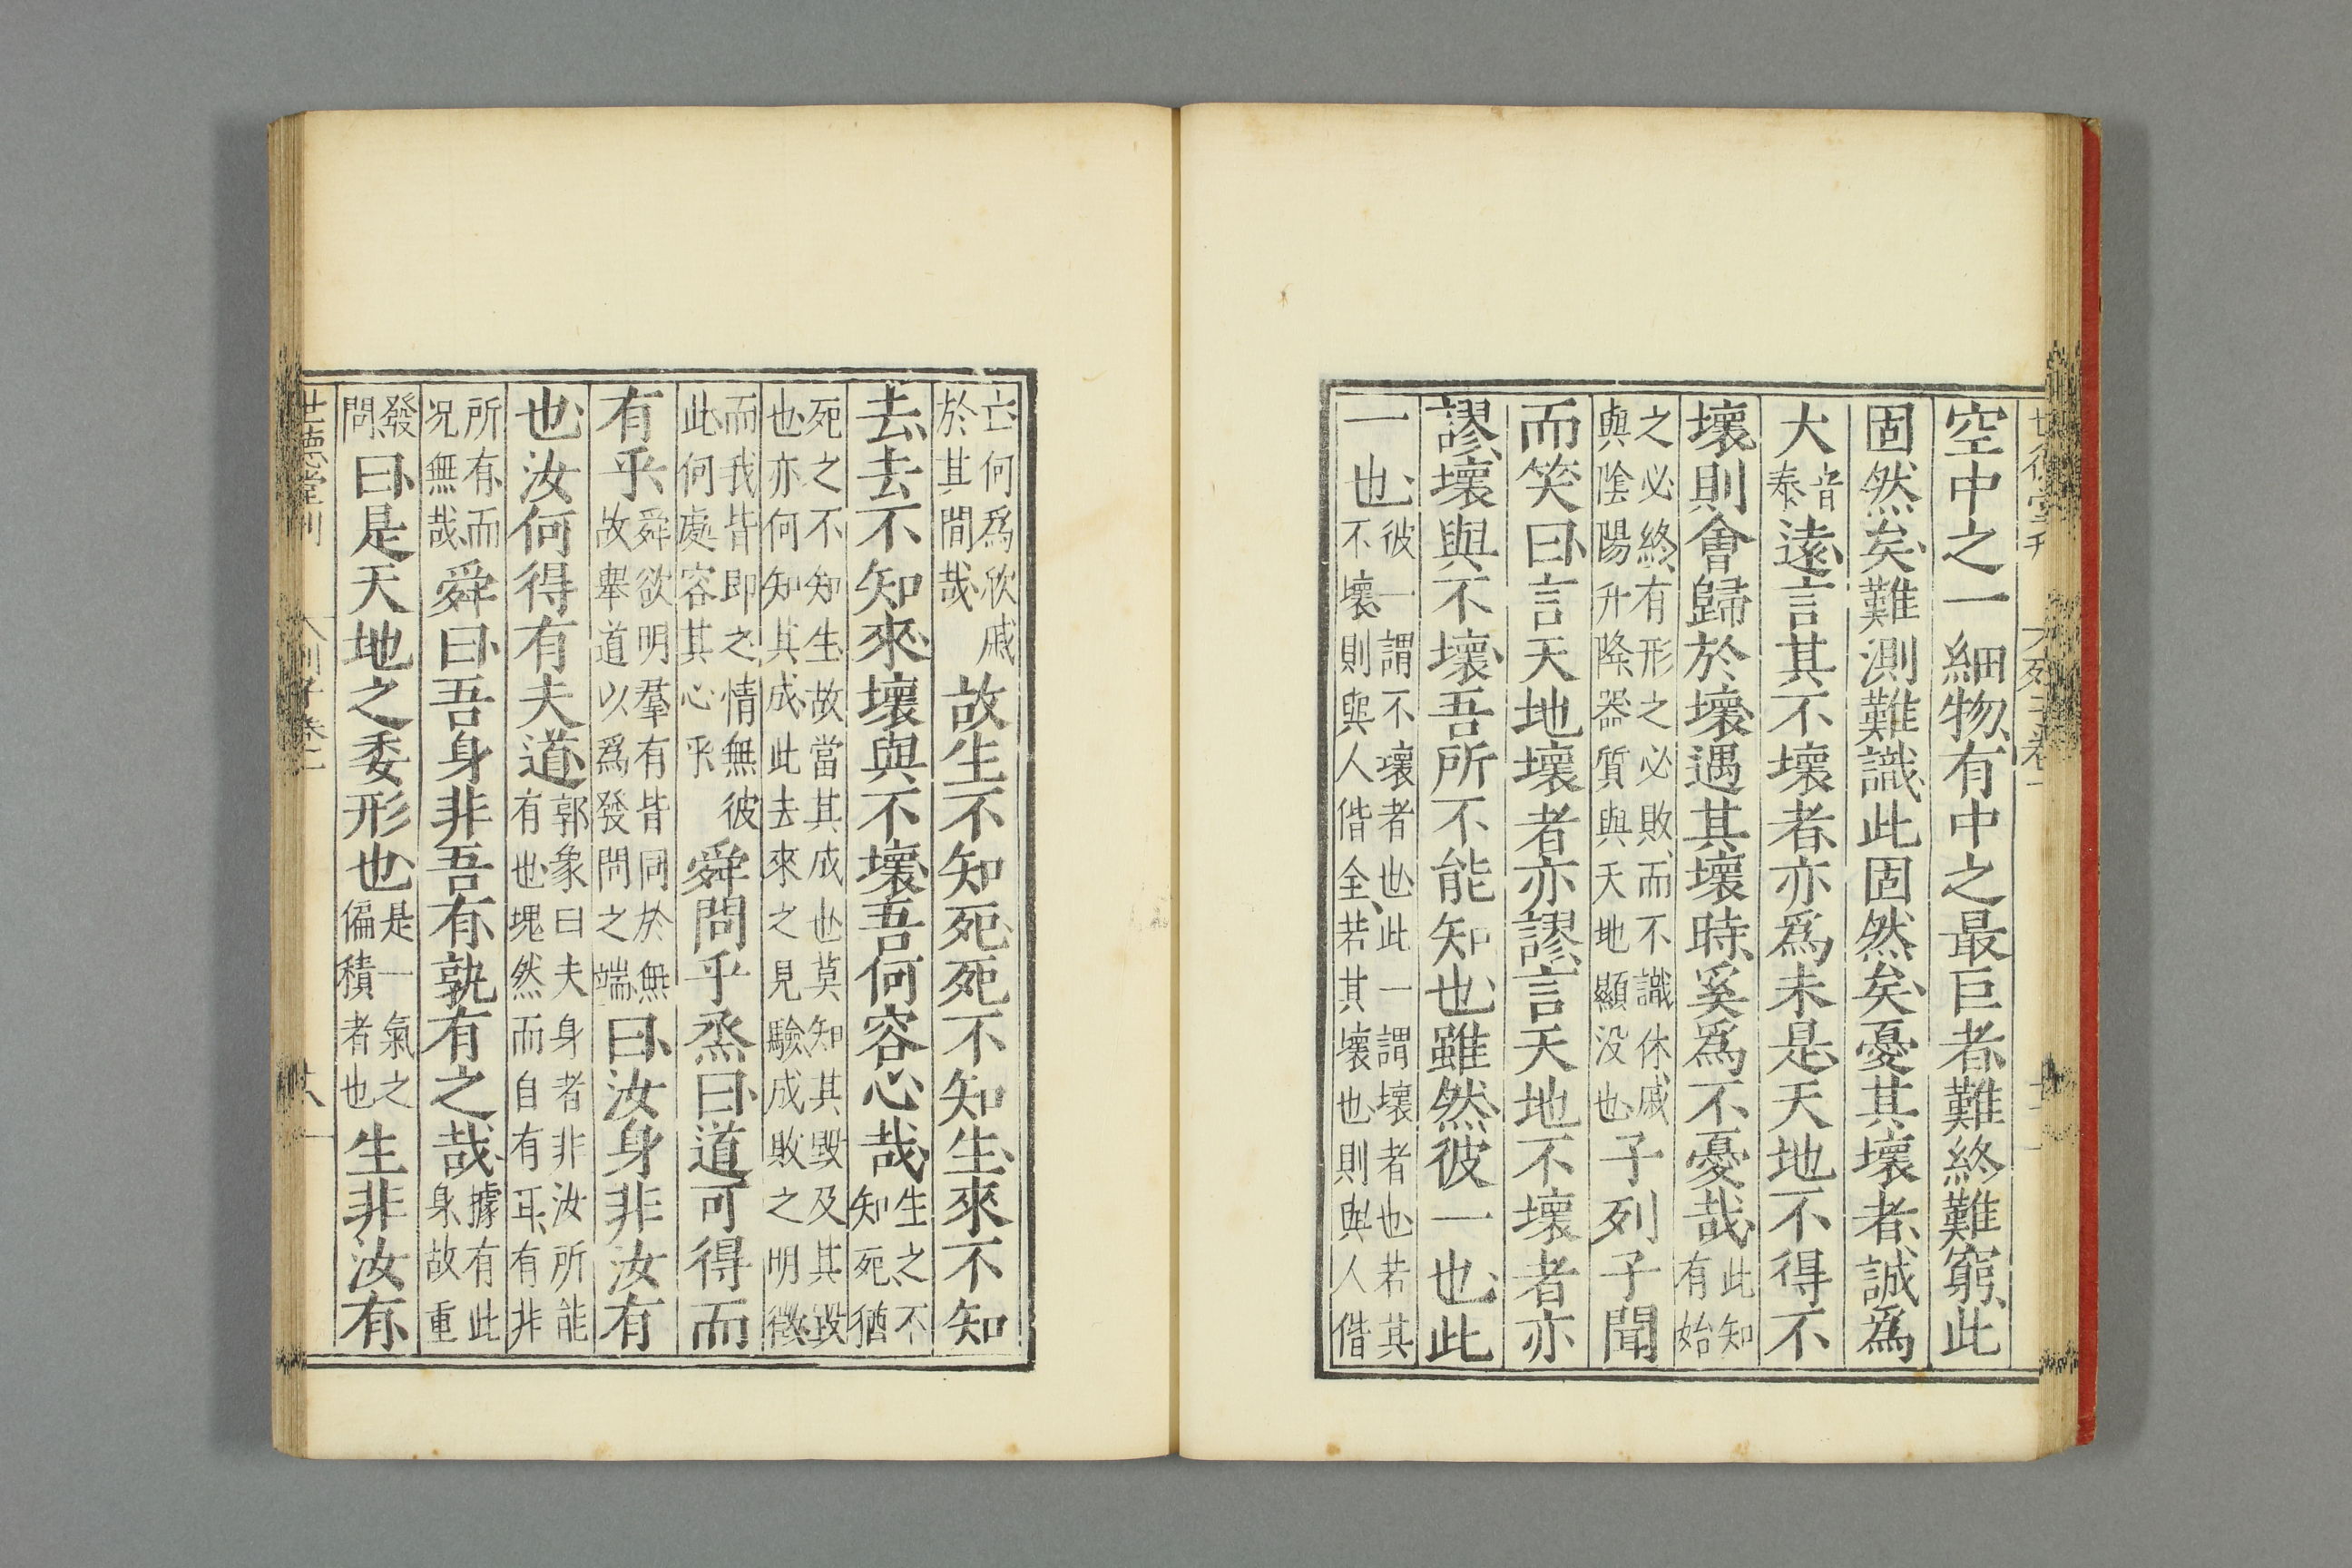 空中之一細物有中之最巨者難終難窮此
固然矣難測難識此固然矣憂其壞者誠爲
大音泰遠言其不壞者亦爲未是天地不得不
壞則會歸於壞遇其壞時奚爲不憂哉此知有始
之必終有形之必敗而不識休戚與陰陽升降器質與天地顯没也子列子聞
而笑曰言天地壞者亦謬言天地不壞者亦
謬壞與不壞吾所不能知也雖然彼一也此
一也彼一謂不壞者也此一謂壞者也若其不壞則與人偕全若其壞也則與人偕
亡何爲欣戚於其間哉故生不知死死不知生來不知
去去不知來壞與不壞吾何容心哉生之不知死猶
死之不知生故當其成也莫知其毁及其毁也亦何知其成此去來之見驗成敗之明徵
而我皆即之情無彼此何處容其心乎舜問乎烝曰道可得而
有乎舜欲明羣有皆同於無故舉道以爲發問之端曰汝身非汝有
也汝何得有夫道郭象曰夫身者非汝所能有也塊然而自有耳有非
所有而况無哉舜曰吾身非吾有孰有之哉據有此身故重
發問曰是天地之委形也是一氣之偏積者也生非汝有
世德堂刊
列子卷一